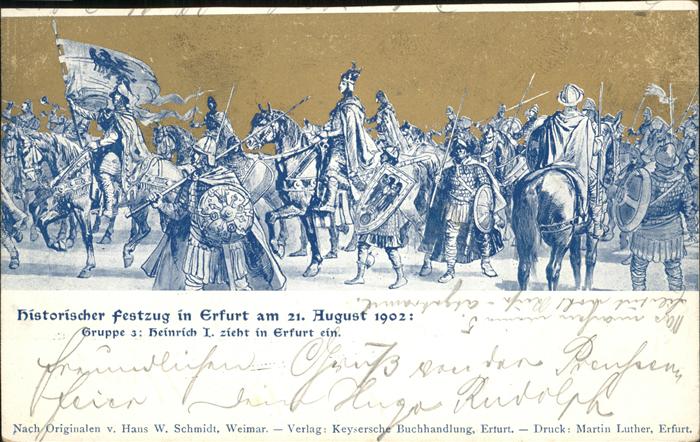 Historischer Festzug in Erfurt am 21. August 1902:
Gruppe 3: Heinrich I. zieht in Erfurt ein.
Freundlichen Gruß von der Preußen
feier Dein Hugo Rudolph
Nach Originalen v. Hans W. Schmidt, Weimar. — Verlag: Keysersche Buchhandlung, Erfurt. — Druck: Martin Luther, Erfurt.